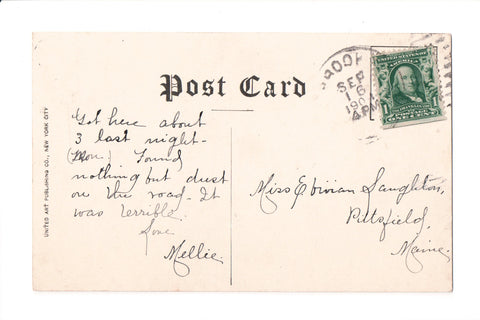 Post Card
UNITED ART PUBLISHING CO., NEW YORK CITY
Got here about
3 last night-
(Mon.) Found
nothing but dust
on the road. It
was terrible.
Love
Mellie.
BROOK
SEP
16
190
4 PM
Miss Eivivian Langhton,
Pittsfield,
Maine.